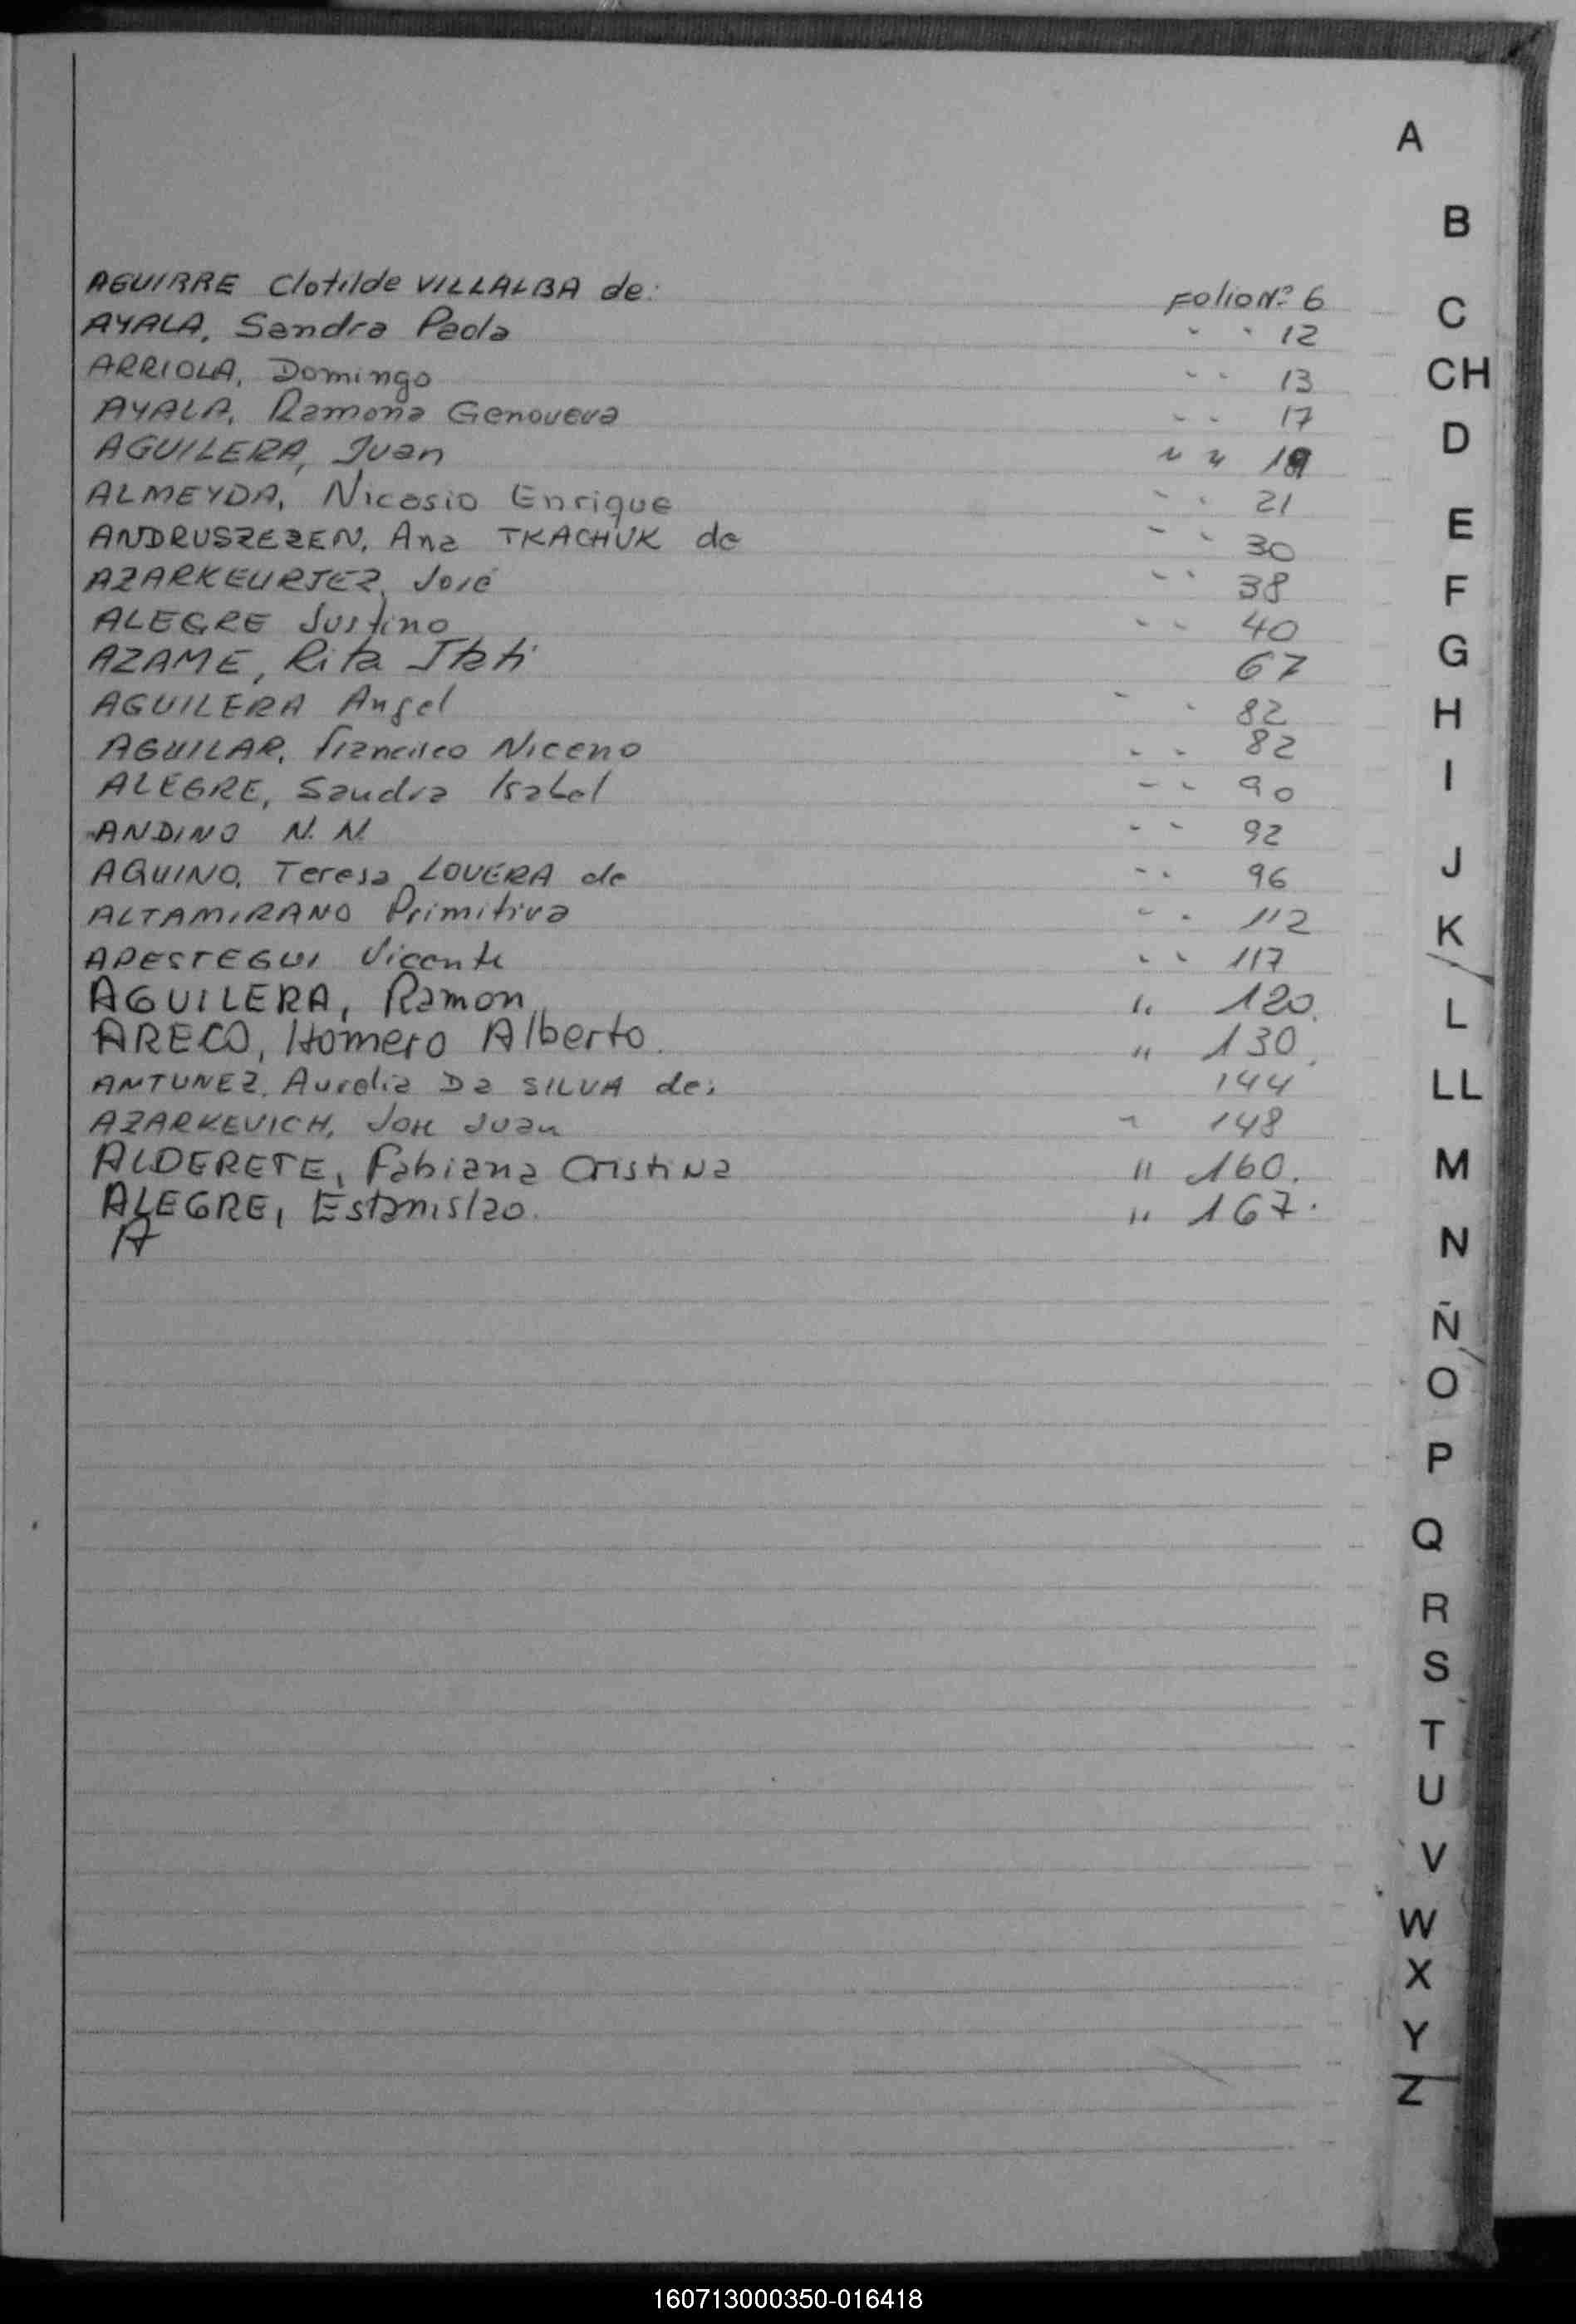 AGUIRRE Clotilde VILLALBA de: Folio Nº 6
AYALA, Sandra Paola " " 12
ARRIOLA, Domingo " " 13
AYALA, Ramona Genoveva " " 17
AGUILERA, Juan " " 19
ALMEYDA, Nicasio Enrique " " 21
ANDRUSZEZEN, Ana TKACHUK de " " 30
AZARKEURJEZ, José " " 38
ALEGRE Justino " " 40
AZAME, Rita Itati 67
AGUILERA Angel " " 82
AGUILAR, Francisco Niceno " " 82
ALEGRE, Sandra Isabel " " 90
ANDINO N. N. " " 92
AQUINO, Teresa LOVERA de " " 96
ALTAMIRANO Primitiva " " 112
APESTEGUI Vicente " " 117
AGUILERA, Ramon " 120.
ARECO, Homero Alberto. " 130.
ANTUNEZ, Aurelia Da SILVA de: 144
AZARKEVICH, José Juan " 148
ALDERETE, Fabiana Cristina " 160.
ALEGRE, Estanislao. " 167.
A
A
B
C
CH
D
E
F
G
H
I
J
K
L
LL
M
N
Ñ
O
P
Q
R
S
T
U
V
W
X
Y
Z
160713000350-016418